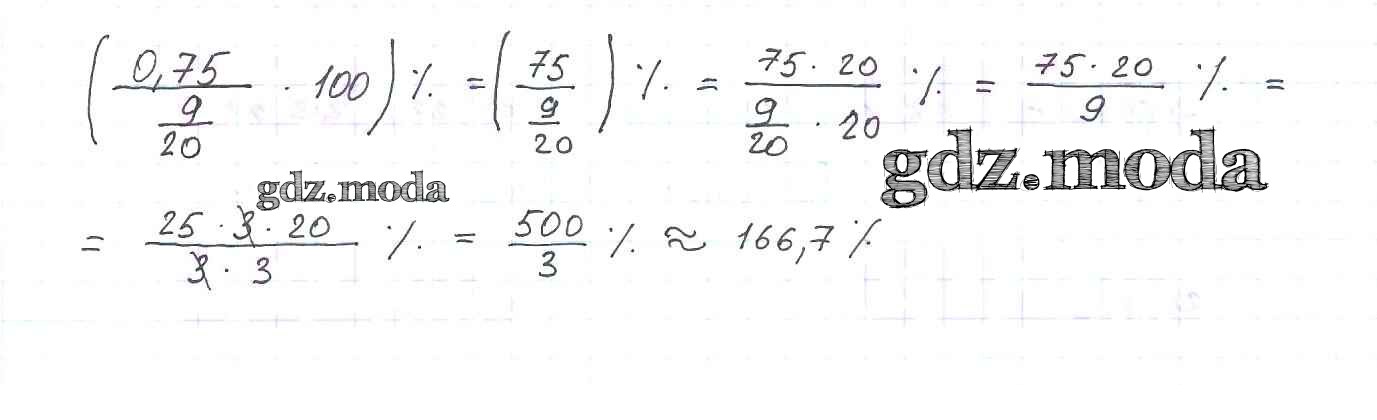 (0,75 / (9/20) · 100) % = (75 / (9/20)) % = (75 · 20) / (9/20 · 20) % = (75 · 20) / 9 % =
gdz.moda
gdz.moda
= (25 · 3 · 20) / (3 · 3) % = 500/3 % ≈ 166,7 %